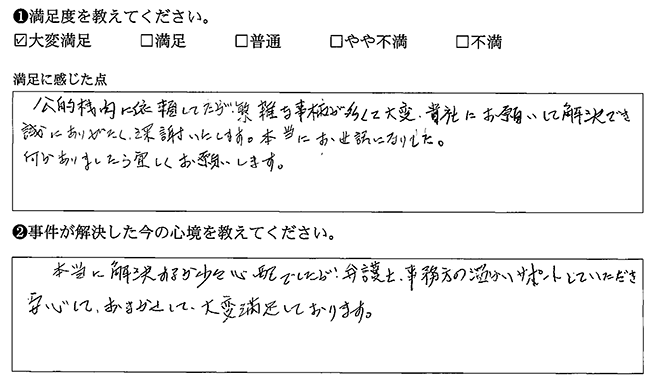 ❶満足度を教えてください。
☑大変満足 □満足 □普通 □やや不満 □不満
満足に感じた点
公的機内に依頼してたが、繁雑な事柄が多くて大変、貴社にお願いして解決でき
誠にありがたく、深謝いたします。本当にお世話になりました。
何かありましたら宜しくお願いします。
❷事件が解決した今の心境を教えてください。
本当に解決するか少々心配でしたが、弁護士、事務方の温かいサポートしていただき
安心して、おまかせして、大変満足しております。